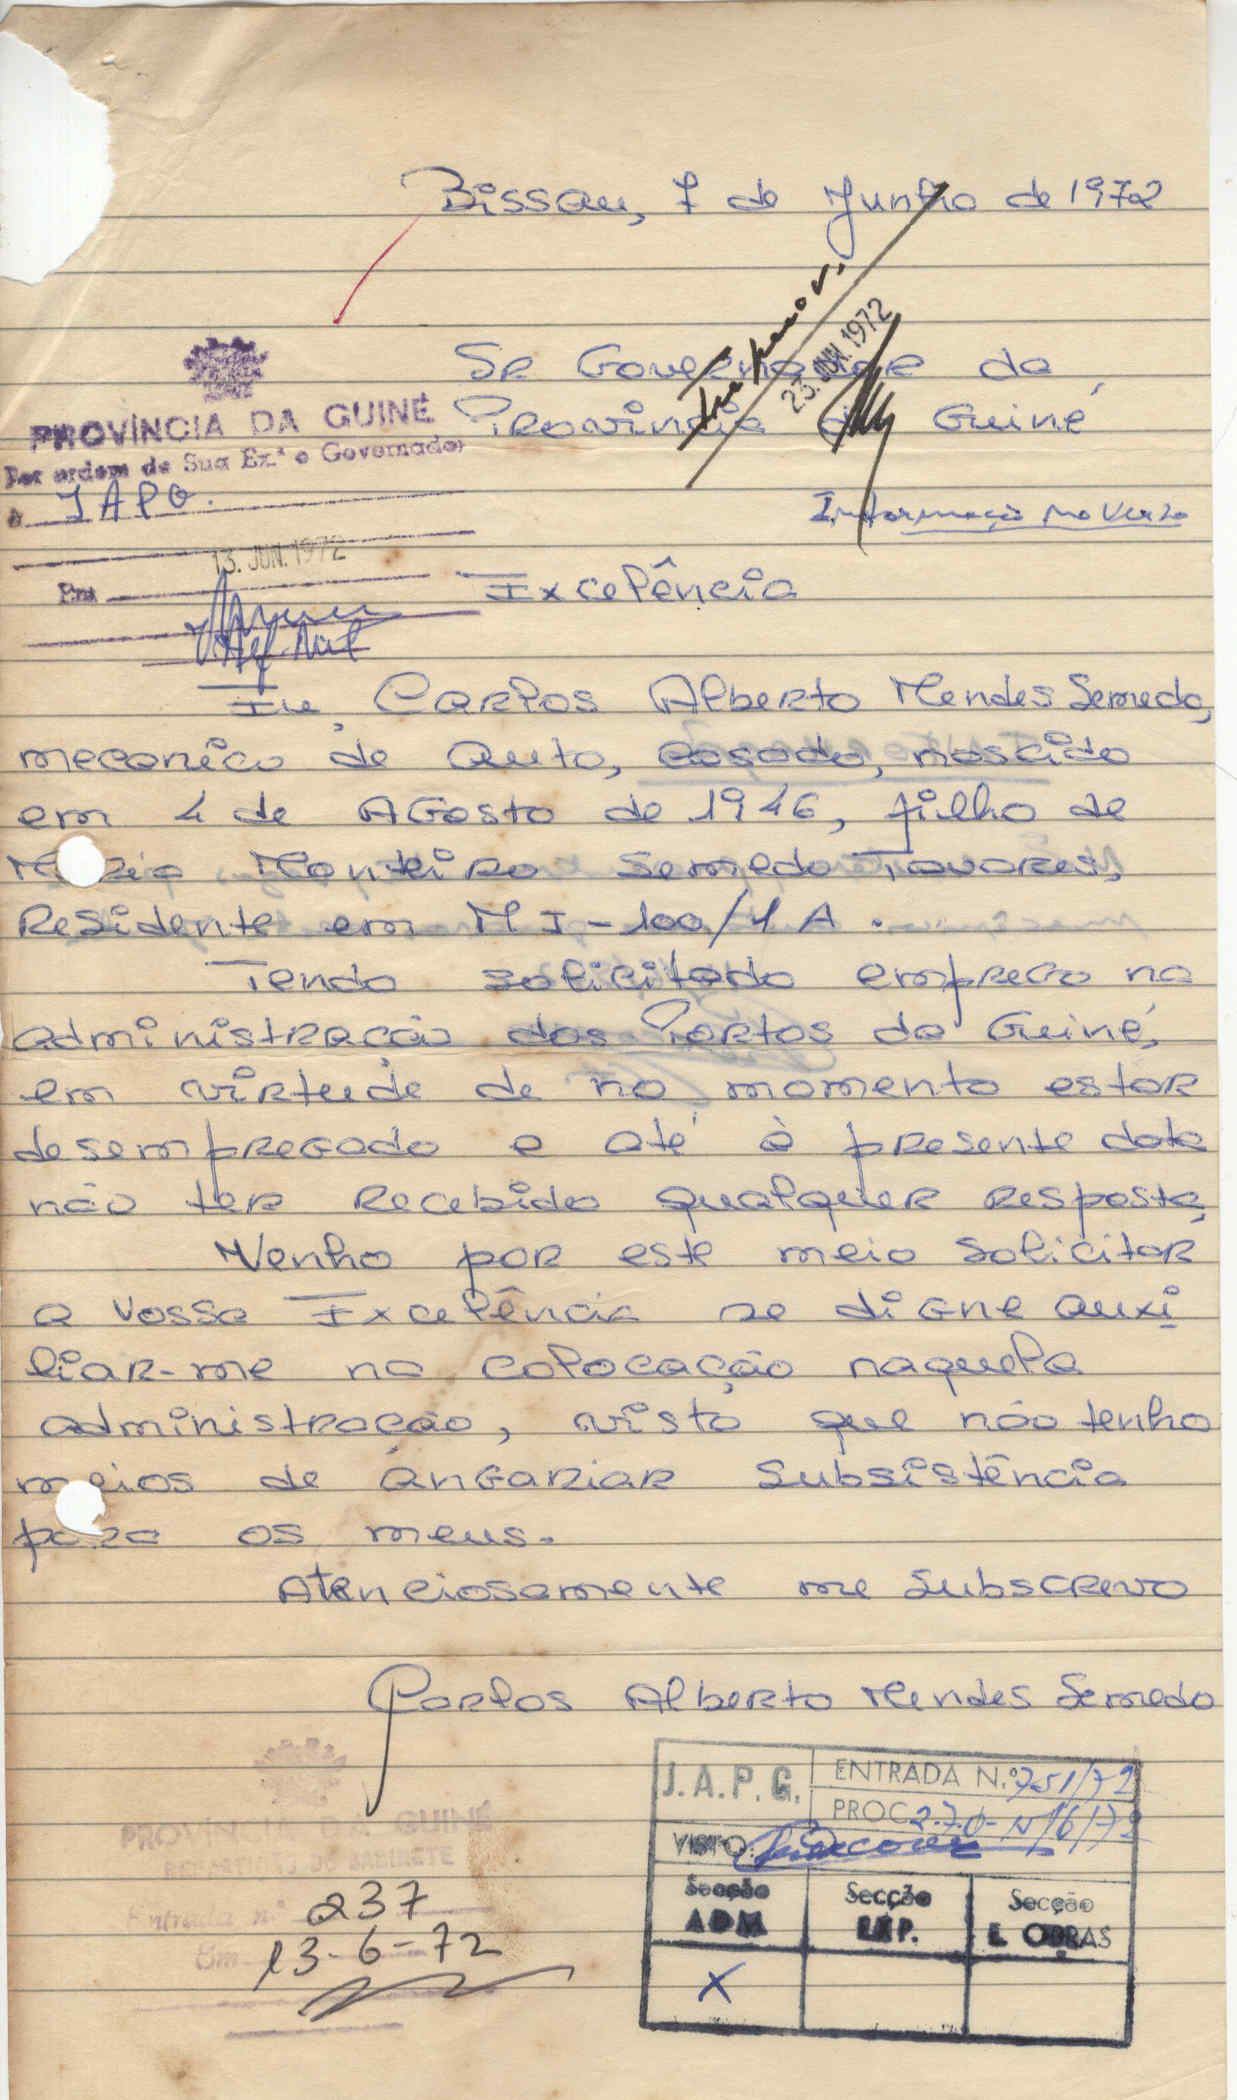 Bissau, 7 de Junho de 1972
23. JUN. 1972
Sr Governador da
Provincia da Guiné
PROVÍNCIA DA GUINÉ
Por ordem de Sua Ex.ª o Governador
à JAPG.
13. JUN. 1972
Em
Informação no verso
Excelência
Eu, Carlos Alberto Mendes Semedo,
mecanico de auto, casado, nascido
em 4 de Agosto de 1946, filho de
Maria Monteiro Semedo Tavares,
Residente em M I-100/1 A.
Tendo solicitado emprego na
administração dos Portos da Guiné,
em virtude de no momento estar
desempregado e até à presente data
não ter recebido qualquer resposta,
Venho por este meio solicitar
a Vossa Excelência se digne auxi
liar-me na colocação naquela
administração, visto que não tenho
meios de angariar subsistência
para os meus.
Atenciosamente me subscrevo
Carlos Alberto Mendes Semedo
PROVÍNCIA DA GUINÉ
REPARTIÇÃO DO GABINETE
Entrada n.º 237
Em 13-6-72
J.A.P.G.
ENTRADA N.º 751/72
PROC.
VISTO
Secção
ADM
Secção
EXP.
Secção
E OBRAS
X